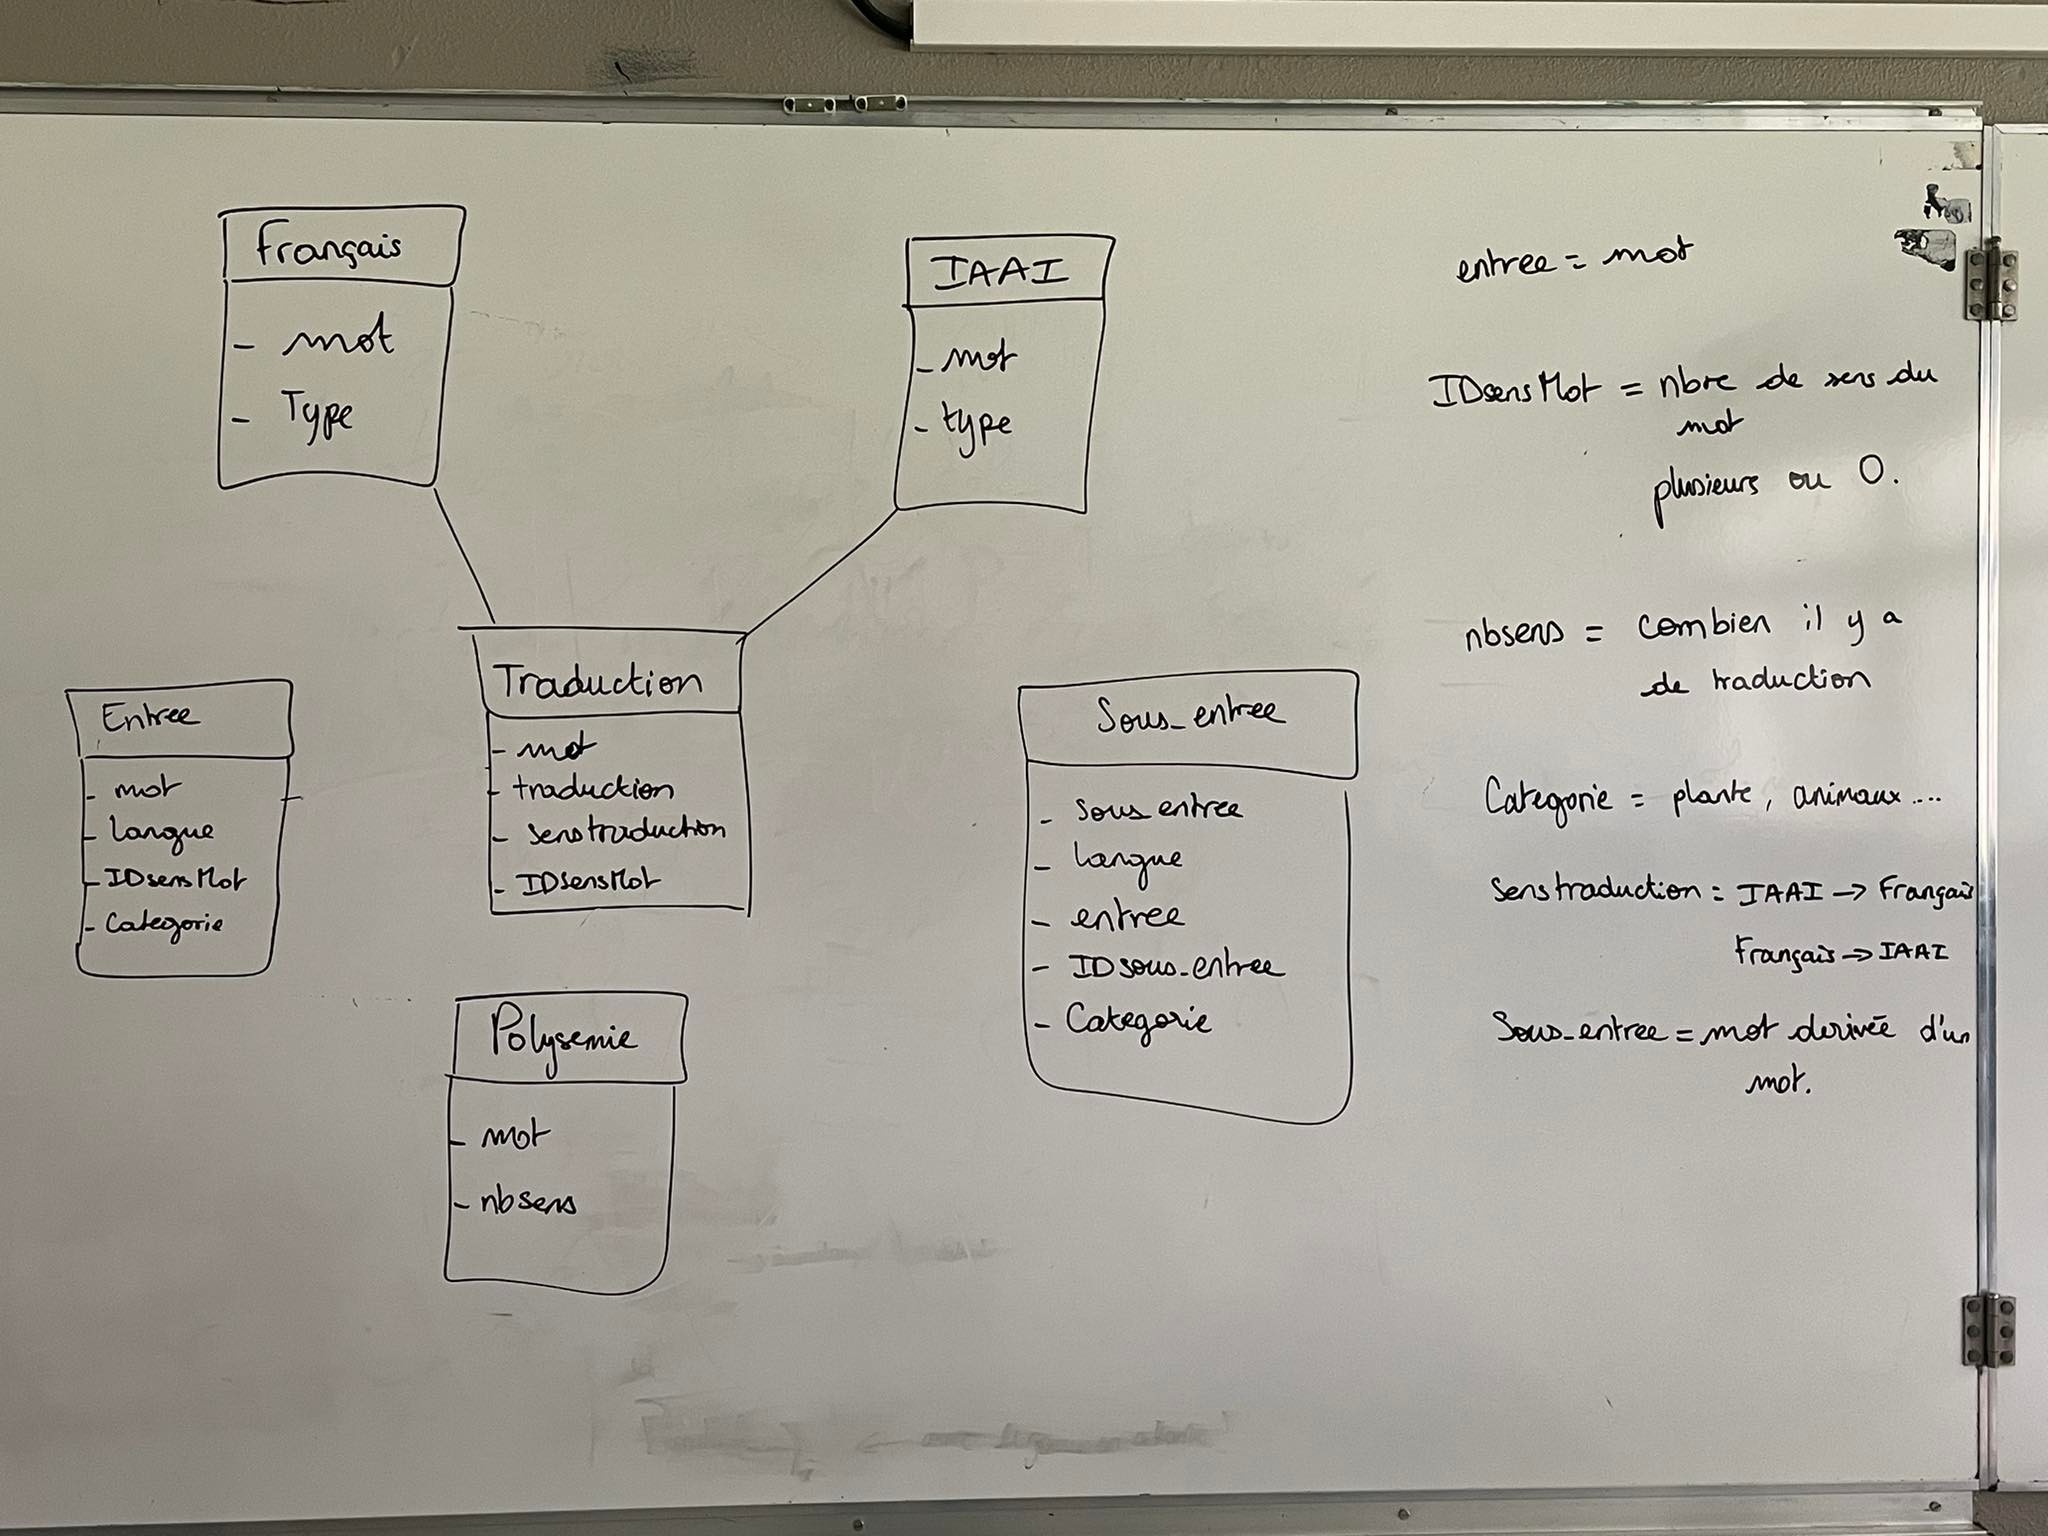 Français
- mot
- Type
IAAI
- mot
- type
Traduction
- mot
- traduction
- senstraduction
- IDsensMot
Entree
- mot
- langue
- IDsensMot
- Categorie
Polysemie
- mot
- nbsens
Sous_entree
- sous_entree
- langue
- entree
- IDsous_entree
- Categorie
entree = mot
IDsensMot = nbre de sens du
mot
plusieurs ou 0.
nbsens = combien il y a
de traduction
Categorie = plante, animaux....
Senstraduction = IAAI → Français
Français → IAAI
Sous_entree = mot derivée d'un
mot.